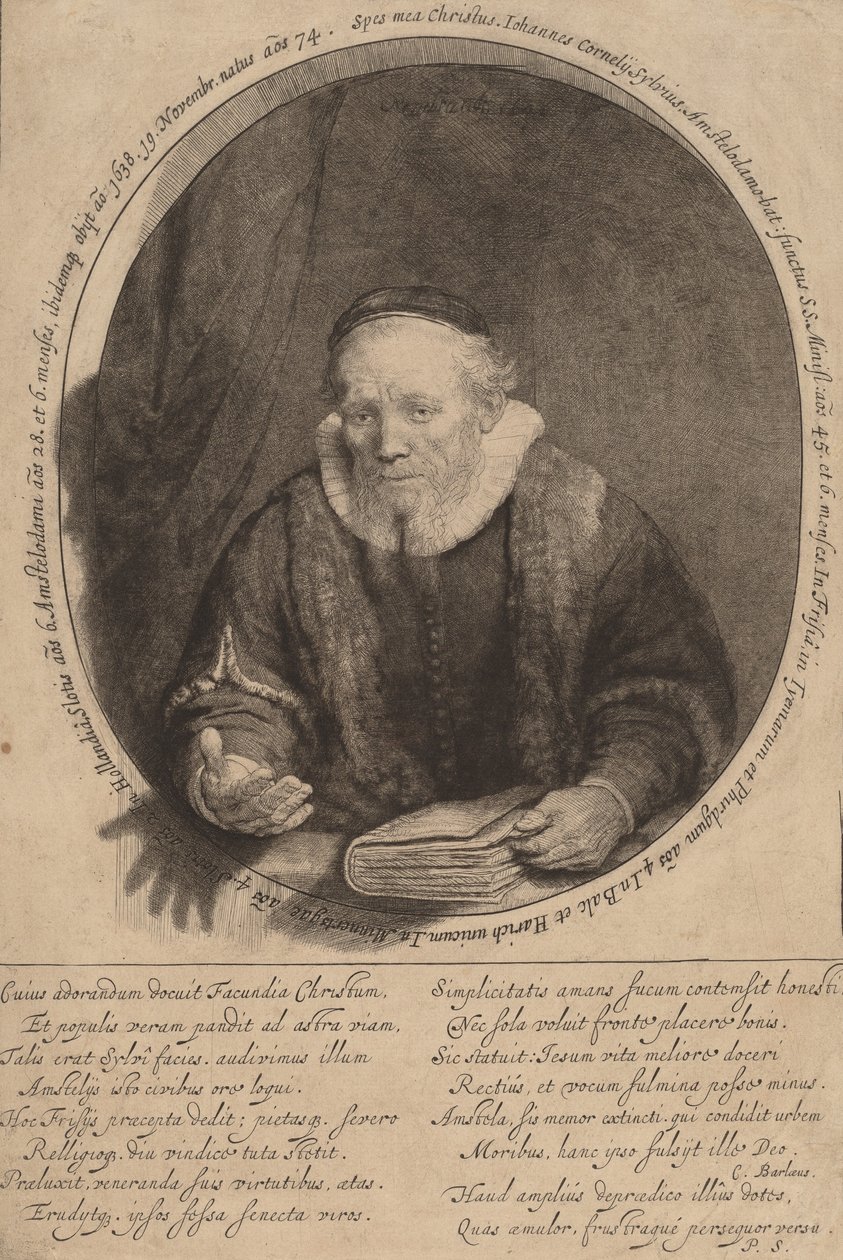 Spes mea Christus. Iohannes Cornelÿ Sylvius, Amstelodamo-bat: functus S.S. Minist: aos 45. et 6. menses. In Frisiâ, in Tyemarum et Phirdgum aos 4. In Balc et Harich unicum. In Minnertsgae aos 4. Slotis aos 2. In Hollandia: Slotis aos 6. Amstelodami aos 28. et 6. menses, ibidemq. obÿt ao. 1638. 19. Novembr. natus aos 74.
Rembrandt
Cuius adorandum docuit Facundia Christum,
Et populis veram pandit ad astra viam,
Talis erat Sylvî facies. audivimus illum
Amstelÿs isto civibus ore loqui.
Hoc Frisÿs præcepta dedit; pietasq. severo
Relligioq. diu vindice tuta stetit.
Præluxit, veneranda suis virtutibus, ætas.
Erudÿtq. ipsos fessa senecta viros.
Simplicitatis amans fucum contemsit honesti,
Nec sola voluit fronte placere bonis.
Sic statuit: Iesum vita meliore doceri
Rectiús, et vocum fulmina posse minus.
Amstela, sis memor extincti. qui condidit urbem
Moribus, hanc ipso fulsÿt ille Deo.
C. Barlæus.
Haud ampliús deprædico illiûs dotes,
Quas æmulor, frustraqué persequor versu.
P. S.